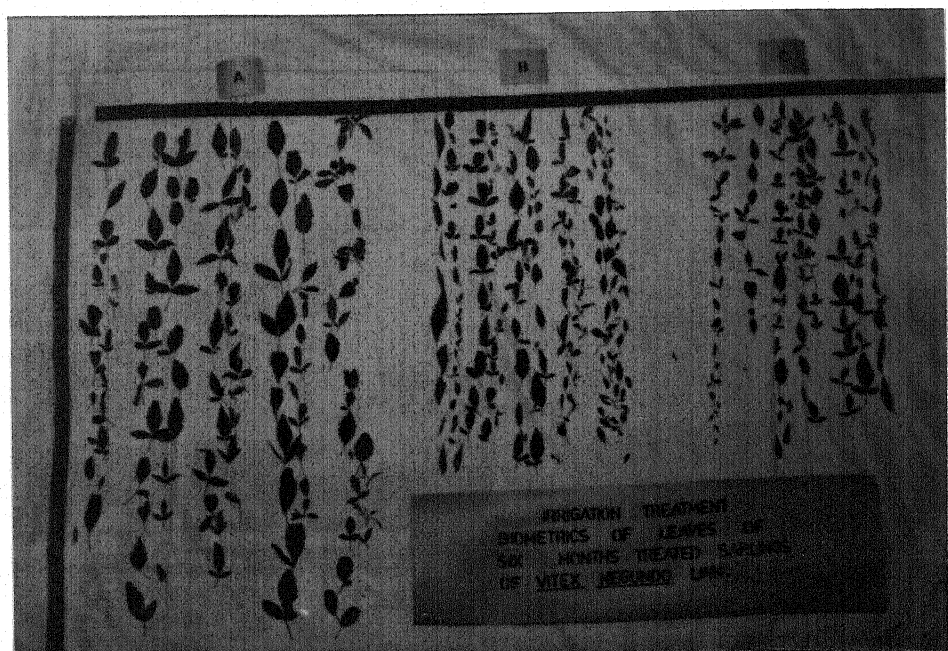 A
B
IRRIGATION TREATMENT
BIOMETRICS OF LEAVES OF
SIX MONTHS TREATED SAPLINGS
OF VITEX NEGUNDO LINN.